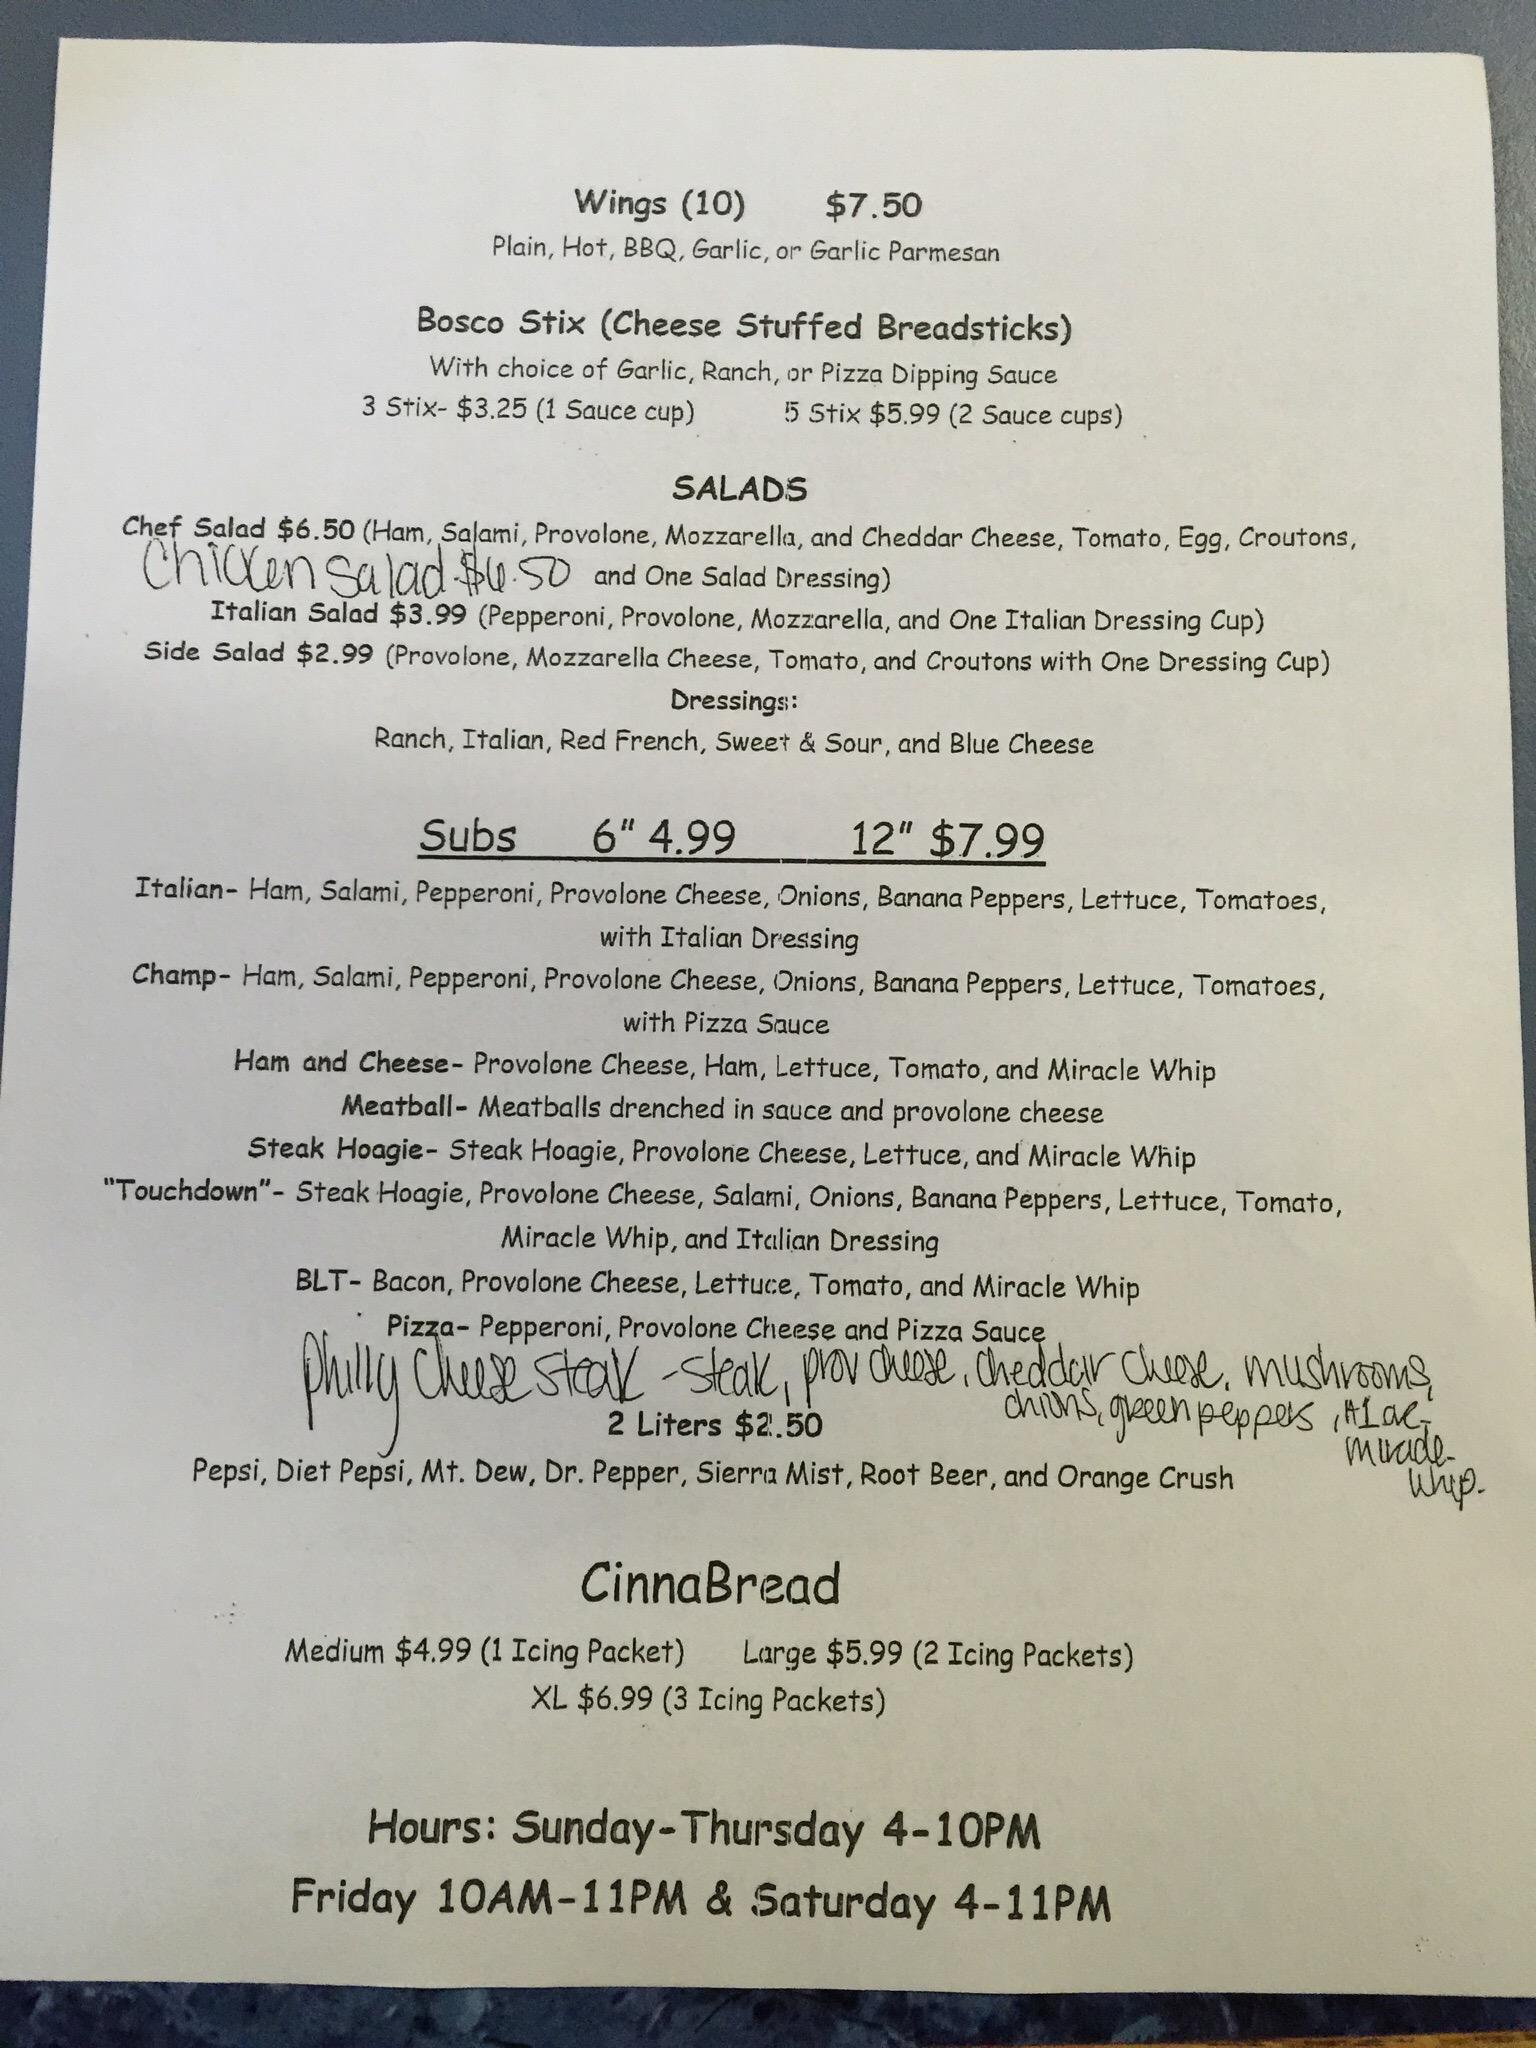 Wings (10) $7.50
Plain, Hot, BBQ, Garlic, or Garlic Parmesan
Bosco Stix (Cheese Stuffed Breadsticks)
With choice of Garlic, Ranch, or Pizza Dipping Sauce
3 Stix- $3.25 (1 Sauce cup) 5 Stix $5.99 (2 Sauce cups)
SALADS
Chef Salad $6.50 (Ham, Salami, Provolone, Mozzarella, and Cheddar Cheese, Tomato, Egg, Croutons,
Chicken Salad $6.50 and One Salad Dressing)
Italian Salad $3.99 (Pepperoni, Provolone, Mozzarella, and One Italian Dressing Cup)
Side Salad $2.99 (Provolone, Mozzarella Cheese, Tomato, and Croutons with One Dressing Cup)
Dressings:
Ranch, Italian, Red French, Sweet & Sour, and Blue Cheese
Subs 6" 4.99 12" $7.99
Italian- Ham, Salami, Pepperoni, Provolone Cheese, Onions, Banana Peppers, Lettuce, Tomatoes,
with Italian Dressing
Champ- Ham, Salami, Pepperoni, Provolone Cheese, Onions, Banana Peppers, Lettuce, Tomatoes,
with Pizza Sauce
Ham and Cheese- Provolone Cheese, Ham, Lettuce, Tomato, and Miracle Whip
Meatball- Meatballs drenched in sauce and provolone cheese
Steak Hoagie- Steak Hoagie, Provolone Cheese, Lettuce, and Miracle Whip
"Touchdown"- Steak Hoagie, Provolone Cheese, Salami, Onions, Banana Peppers, Lettuce, Tomato,
Miracle Whip, and Italian Dressing
BLT- Bacon, Provolone Cheese, Lettuce, Tomato, and Miracle Whip
Pizza- Pepperoni, Provolone Cheese and Pizza Sauce
Philly Cheese Steak - Steak, prov cheese, cheddar cheese, mushrooms,
onions, green peppers, A1 or
miracle
whip.
2 Liters $2.50
Pepsi, Diet Pepsi, Mt. Dew, Dr. Pepper, Sierra Mist, Root Beer, and Orange Crush
CinnaBread
Medium $4.99 (1 Icing Packet) Large $5.99 (2 Icing Packets)
XL $6.99 (3 Icing Packets)
Hours: Sunday-Thursday 4-10PM
Friday 10AM-11PM & Saturday 4-11PM